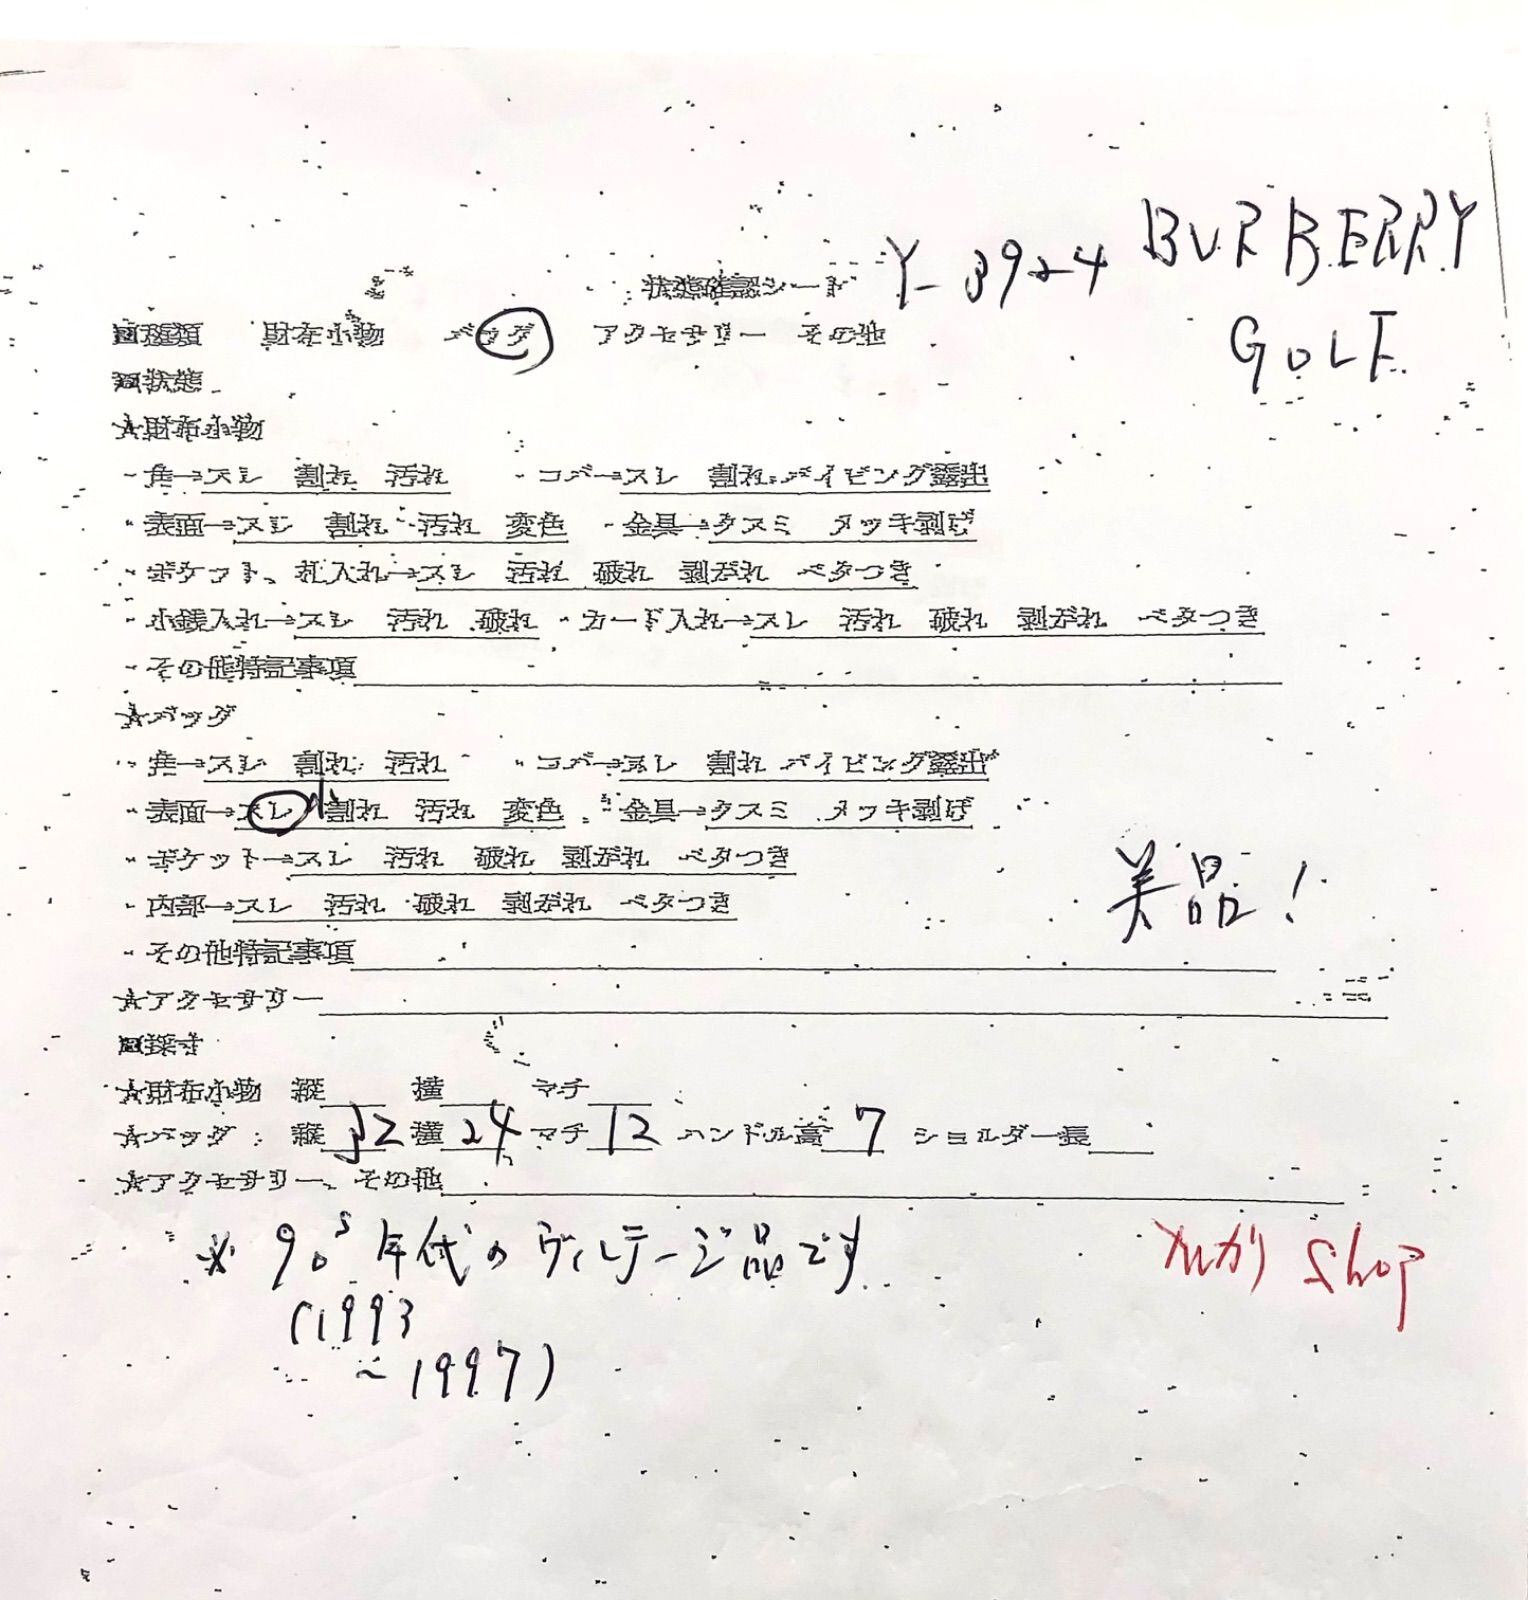 Y-3924 BURBERRY
GOLF
状態確認シート
□種類 財布小物 バッグ アクセサリー その他
□状態
☆財布小物
・角→スレ 割れ 汚れ ・コバ→スレ 割れ パイピング露出
・表面→スレ 割れ 汚れ 変色 ・金具→クスミ メッキ剥げ
・ポケット、札入れ→スレ 汚れ 破れ 剥がれ ベタつき
・小銭入れ→スレ 汚れ 破れ ・カード入れ→スレ 汚れ 破れ 剥がれ ベタつき
・その他特記事項
☆バッグ
・角→スレ 割れ 汚れ ・コバ→スレ 割れ パイピング露出
・表面→スレ 小 割れ 汚れ 変色 ・金具→クスミ メッキ剥げ
・ポケット→スレ 汚れ 破れ 剥がれ ベタつき
美品!
・内部→スレ 汚れ 破れ 剥がれ ベタつき
・その他特記事項
☆アクセサリー
□採寸
☆財布小物 縦 横 マチ
☆バッグ:縦 32 横 24 マチ 12 ハンドル高 7 ショルダー長
☆アクセサリー、その他
※ 90s年代のヴィンテージ品です
(1993
~1997)
メルカリ Shop